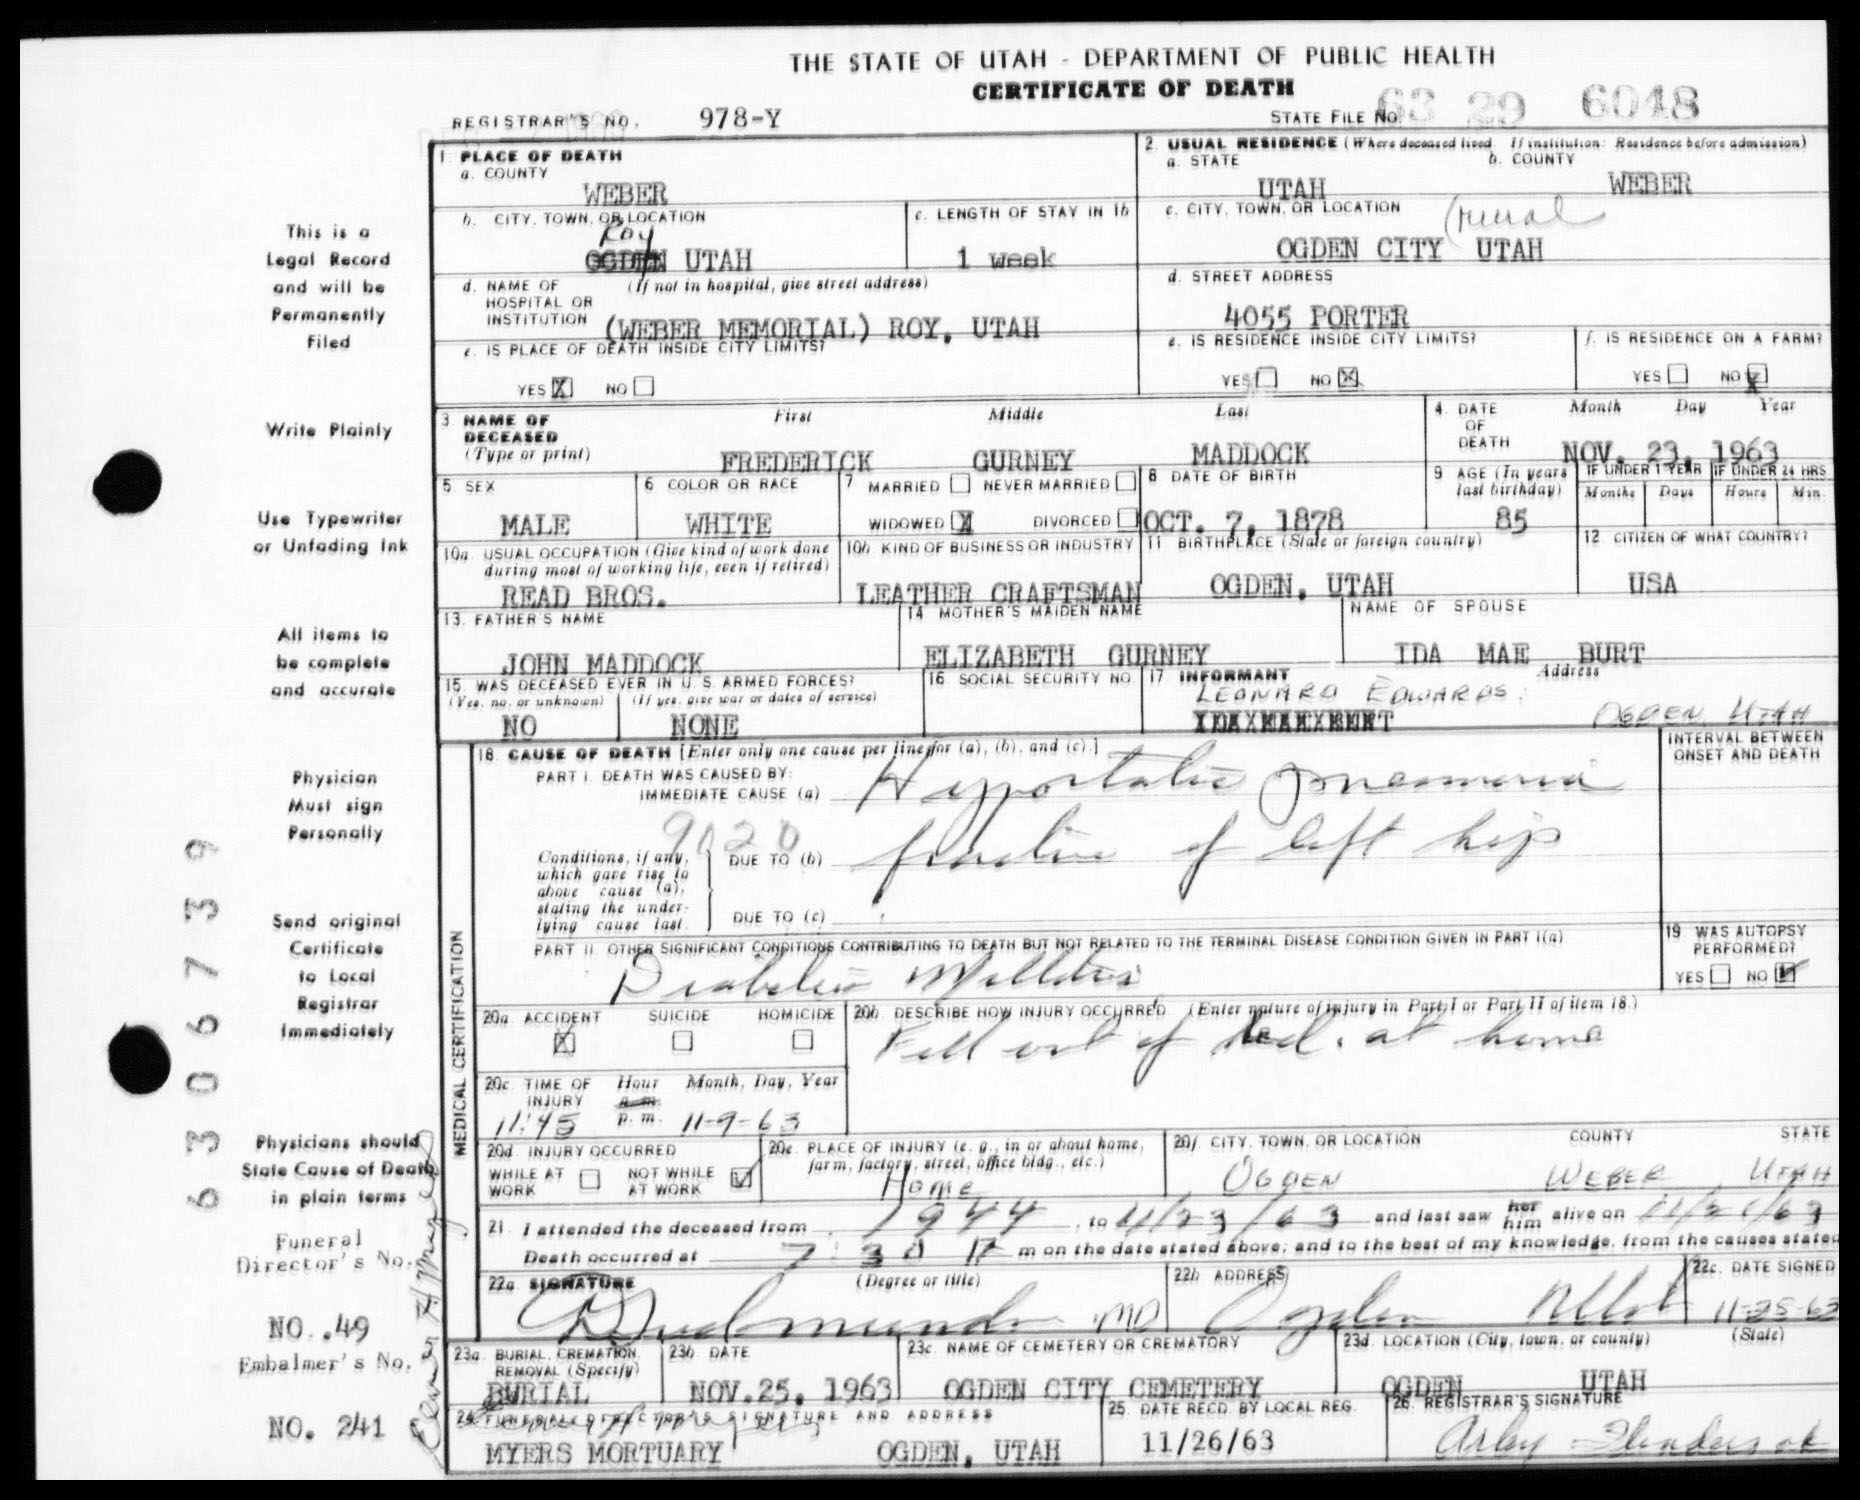 THE STATE OF UTAH - DEPARTMENT OF PUBLIC HEALTH
CERTIFICATE OF DEATH
REGISTRAR'S NO. 978-Y STATE FILE NO. 63 29 6048
1. PLACE OF DEATH
a. COUNTY
WEBER
2. USUAL RESIDENCE (Where deceased lived. If institution: Residence before admission)
a. STATE b. COUNTY
UTAH WEBER
b. CITY, TOWN, OR LOCATION
Roy
OGDEN UTAH
c. LENGTH OF STAY IN 1b
1 week
c. CITY, TOWN, OR LOCATION
(rural
OGDEN CITY UTAH
d. NAME OF HOSPITAL OR INSTITUTION (If not in hospital, give street address)
(WEBER MEMORIAL) ROY, UTAH
d. STREET ADDRESS
4055 PORTER
e. IS PLACE OF DEATH INSIDE CITY LIMITS?
YES X NO
e. IS RESIDENCE INSIDE CITY LIMITS?
YES NO X
f. IS RESIDENCE ON A FARM?
YES NO X
3. NAME OF DECEASED (Type or print)
First Middle Last
FREDERICK GURNEY MADDOCK
4. DATE OF DEATH
Month Day Year
NOV. 23, 1963
5. SEX
MALE
6. COLOR OR RACE
WHITE
7. MARRIED NEVER MARRIED
WIDOWED X DIVORCED
8. DATE OF BIRTH
OCT. 7, 1878
9. AGE (In years last birthday)
85
IF UNDER 1 YEAR IF UNDER 24 HRS.
Months Days Hours Min.
10a. USUAL OCCUPATION (Give kind of work done during most of working life, even if retired)
READ BROS.
10b. KIND OF BUSINESS OR INDUSTRY
LEATHER CRAFTSMAN
11. BIRTHPLACE (State or foreign country)
OGDEN, UTAH
12. CITIZEN OF WHAT COUNTRY?
USA
13. FATHER'S NAME
JOHN MADDOCK
14. MOTHER'S MAIDEN NAME
ELIZABETH GURNEY
NAME OF SPOUSE
IDA MAE BURT
15. WAS DECEASED EVER IN U. S. ARMED FORCES?
(Yes, no, or unknown) (If yes, give war or dates of service)
NO NONE
16. SOCIAL SECURITY NO.
17. INFORMANT Address
LEONARD EDWARDS.
IDAXMAEXBURT OGDEN UTAH
18. CAUSE OF DEATH [Enter only one cause per line for (a), (b), and (c).]
INTERVAL BETWEEN ONSET AND DEATH
PART I. DEATH WAS CAUSED BY:
IMMEDIATE CAUSE (a) Hypostatic pneumonia
9020
Conditions, if any, which gave rise to above cause (a), stating the underlying cause last.
DUE TO (b) fracture of left hip
DUE TO (c)
PART II. OTHER SIGNIFICANT CONDITIONS CONTRIBUTING TO DEATH BUT NOT RELATED TO THE TERMINAL DISEASE CONDITION GIVEN IN PART I(a)
Diabetes Mellitus
19. WAS AUTOPSY PERFORMED?
YES NO
20a. ACCIDENT SUICIDE HOMICIDE
X
20b. DESCRIBE HOW INJURY OCCURRED. (Enter nature of injury in Part I or Part II of item 18.)
Fell out of bed. at home
20c. TIME OF INJURY Hour Month, Day, Year
a.m.
11:45 p.m. 11-9-63
20d. INJURY OCCURRED
WHILE AT WORK NOT WHILE AT WORK
20e. PLACE OF INJURY (e. g., in or about home, farm, factory, street, office bldg., etc.)
Home
20f. CITY, TOWN, OR LOCATION COUNTY STATE
OGDEN WEBER UTAH
21. I attended the deceased from 1944, to 11/23/63 and last saw her him alive on
Death occurred at 7:30 P m on the date stated above; and to the best of my knowledge, from the causes stated
22a. SIGNATURE (Degree or title)
MD
22b. ADDRESS
Ogden Utah
22c. DATE SIGNED
11-25-63
23a. BURIAL, CREMATION, REMOVAL (Specify)
BURIAL
23b. DATE
NOV.25, 1963
23c. NAME OF CEMETERY OR CREMATORY
OGDEN CITY CEMETERY
23d. LOCATION (City, town, or county) (State)
OGDEN UTAH
24. FUNERAL DIRECTOR'S SIGNATURE AND ADDRESS
MYERS MORTUARY OGDEN, UTAH
25. DATE RECD. BY LOCAL REG.
11/26/63
26. REGISTRAR'S SIGNATURE
MEDICAL CERTIFICATION
This is a
Legal Record
and will be
Permanently
Filed
Write Plainly
Use Typewriter
or Unfading Ink
All items to
be complete
and accurate
Physician
Must sign
Personally
Send original
Certificate
to Local
Registrar
Immediately
Physicians should
State Cause of Death
in plain terms
Funeral
Director's No.
NO. .49
Embalmer's No.
NO. 241
6306739